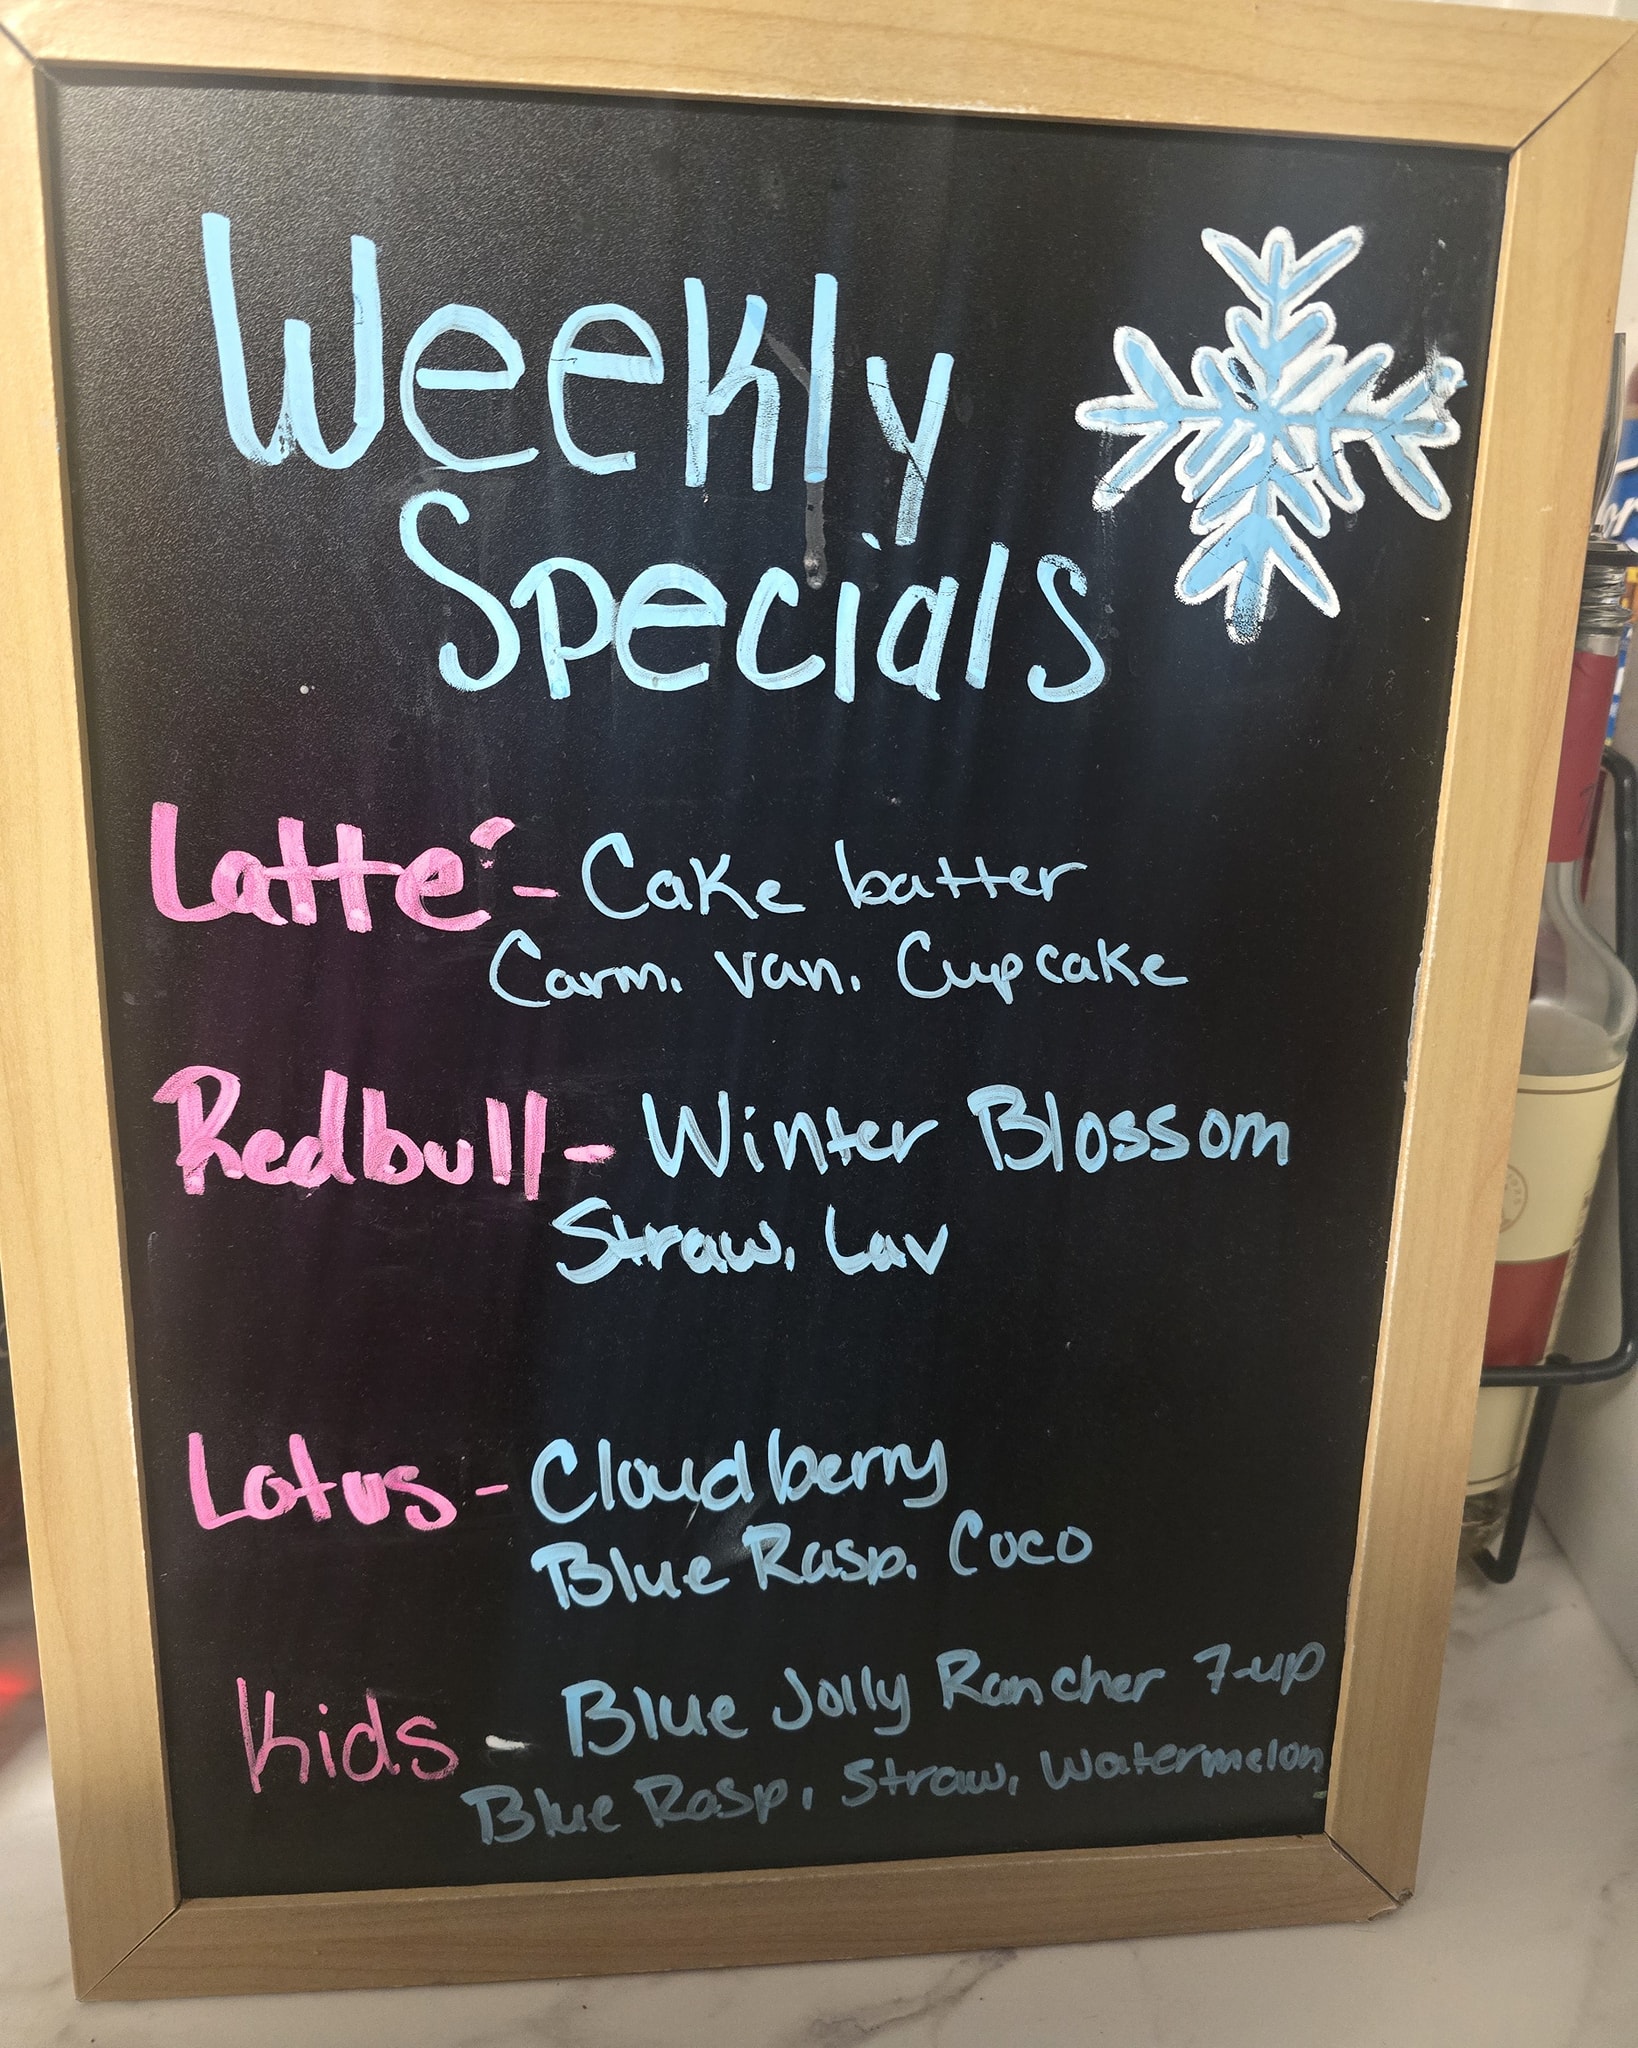 Weekly
Specials
Latté - Cake batter
Carm. Van. Cupcake
Redbull - Winter Blossom
Straw. Lav
Lotus - Cloudberry
Blue Rasp. Coco
Kids - Blue Jolly Rancher 7-up
Blue Rasp, Straw, Watermelon